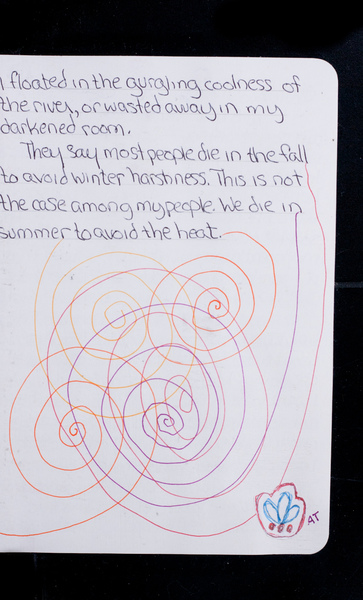 I floated in the gurgling coolness of
the river, or wasted away in my
darkened room.
They say most people die in the fall
to avoid winter harshness. This is not
the case among my people. We die in
summer to avoid the heat.
AT